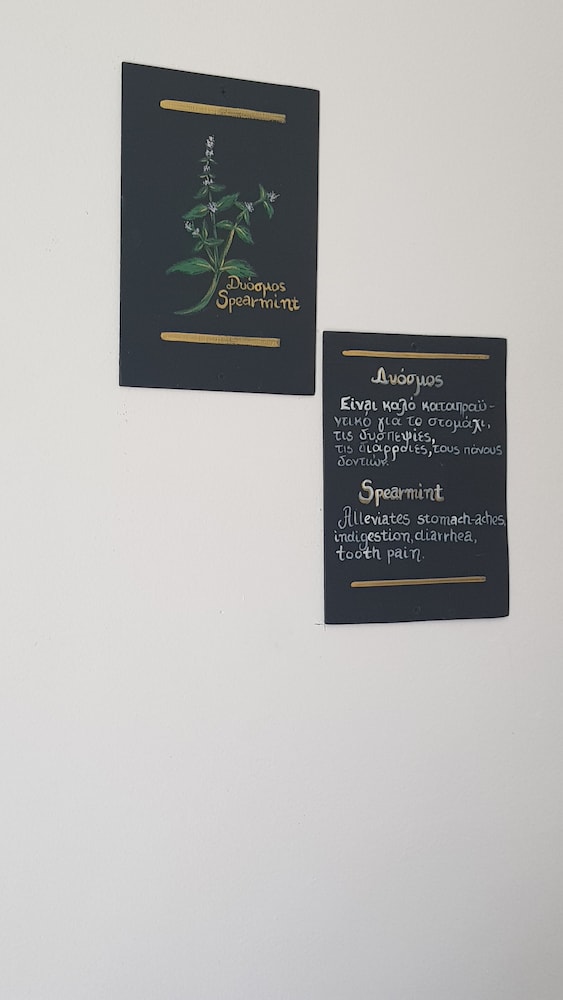 Δυόσμος
Spearmint
Δυόσμος
Είναι καλό καταπραϋ-
ντικό για το στομάχι,
τις δυσπεψίες,
τις διάρροιες, τους πόνους
δοντιών.
Spearmint
Alleviates stomach-aches,
indigestion, diarrhea,
tooth pain.